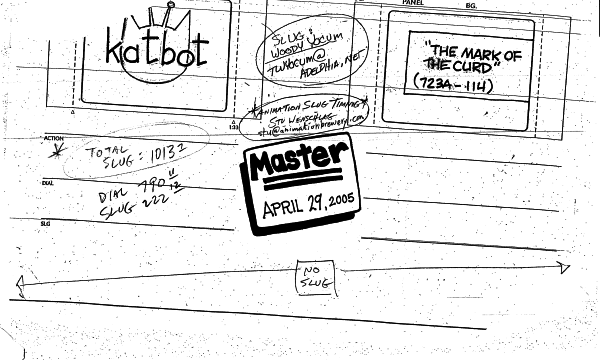 PANEL
BG.
katbot
SLUG:
WOODY YOCUM
TWYOCUM@
ADELPHIA.NET
"THE MARK OF
THE CURD"
(723A-114)
*ANIMATION SLUG TIMING*
STU WENSCHLAG
stu@animationbrewery.com
ACTION
TOTAL
SLUG:
DIAL
DIAL 790
SLUG 222
SLG
Master
APRIL 29, 2005
NO
SLUG